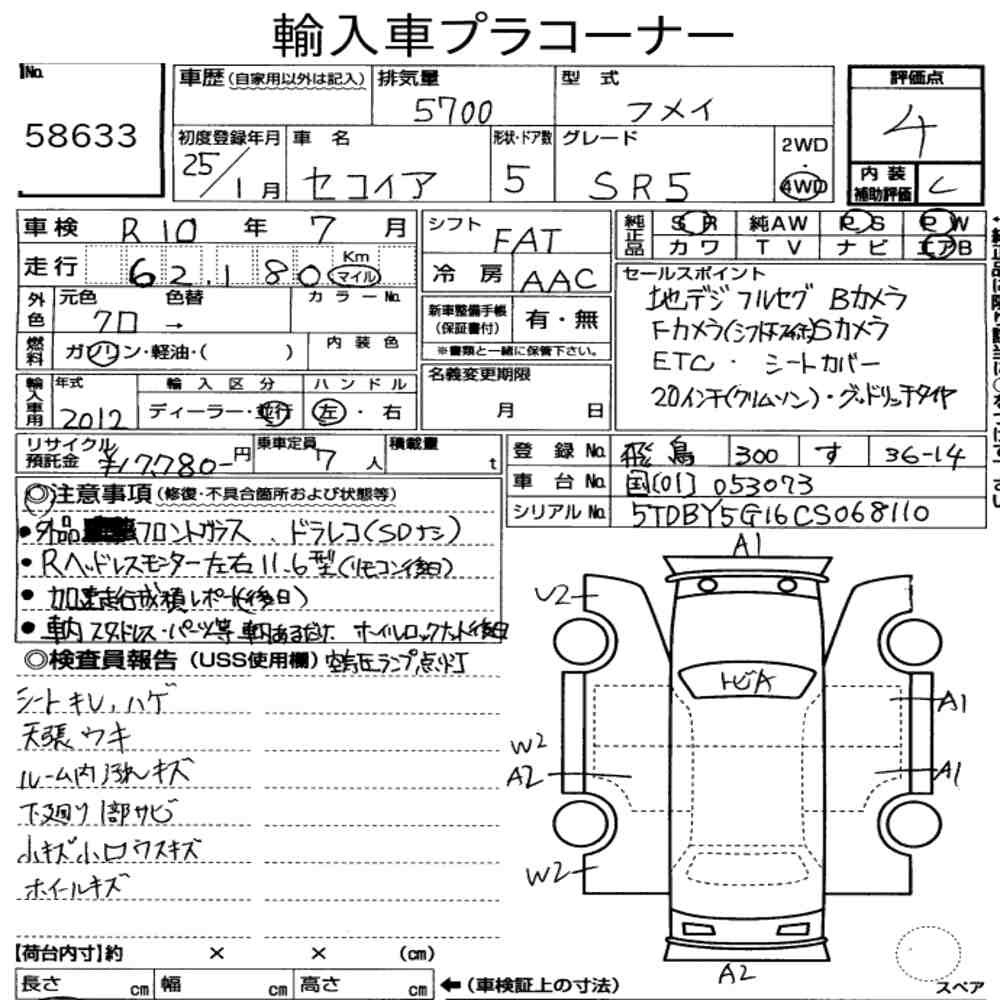 輸入車プラコーナー
No.
58633
車歴(自家用以外は記入)
排気量
5700
型式
フメイ
評価点
4
初度登録年月
25/1月
車名
セコイア
形状・ドア数
5
グレード
SR5
2WD
・
4WD
内装
補助評価
C
車検 R10年7月
走行 62,180 Km マイル
シフト
FAT
冷房 AAC
純正品
SR 純AW PS PW
カワ TV ナビ エアB
外色
元色 色替
クロ →
カラーNo.
燃料
ガソリン・軽油・( )
内装色
新車整備手帳
(保証書付)
有・無
※書類と一緒に保管下さい。
セールスポイント
地デジ フルセグ Bカメラ
Fカメラ Sカメラ
ETC・シートカバー
20インチ(クリムソン)・グッドリッチタイヤ
輸入車用
年式
2012
輸入区分
ディーラー・並行
ハンドル
左・右
名義変更期限
月 日
リサイクル
預託金
¥17,780-円
乗車定員
7人
積載量
t
登録No. 飛鳥 300 す 36-14
車台No. 国[01]053073
シリアルNo. 5TDBY5G16CS068110
◎注意事項(修復・不具合箇所および状態等)
・社外品 フロントガラス、ドラレコ(SDナシ)
・Rヘッドレスモニター左右11.6型(リモコン後日)
・加速走行成績レポート(後日)
・車内 スタッドレス・パーツ等 車内あるだけ ホイールロックナット後日
◎検査員報告(USS使用欄)空気圧ランプ点灯
シートキレ,ハゲ
天張ウキ
ルーム内汚れキズ
下廻り1部サビ
小キズ小凹ウスキズ
ホイールキズ
A1
U2
トビA
A1
W2
A2
A1
W2
A2
スペア
【荷台内寸】約 × × (cm)
長さ cm 幅 cm 高さ cm ←(車検証上の寸法)